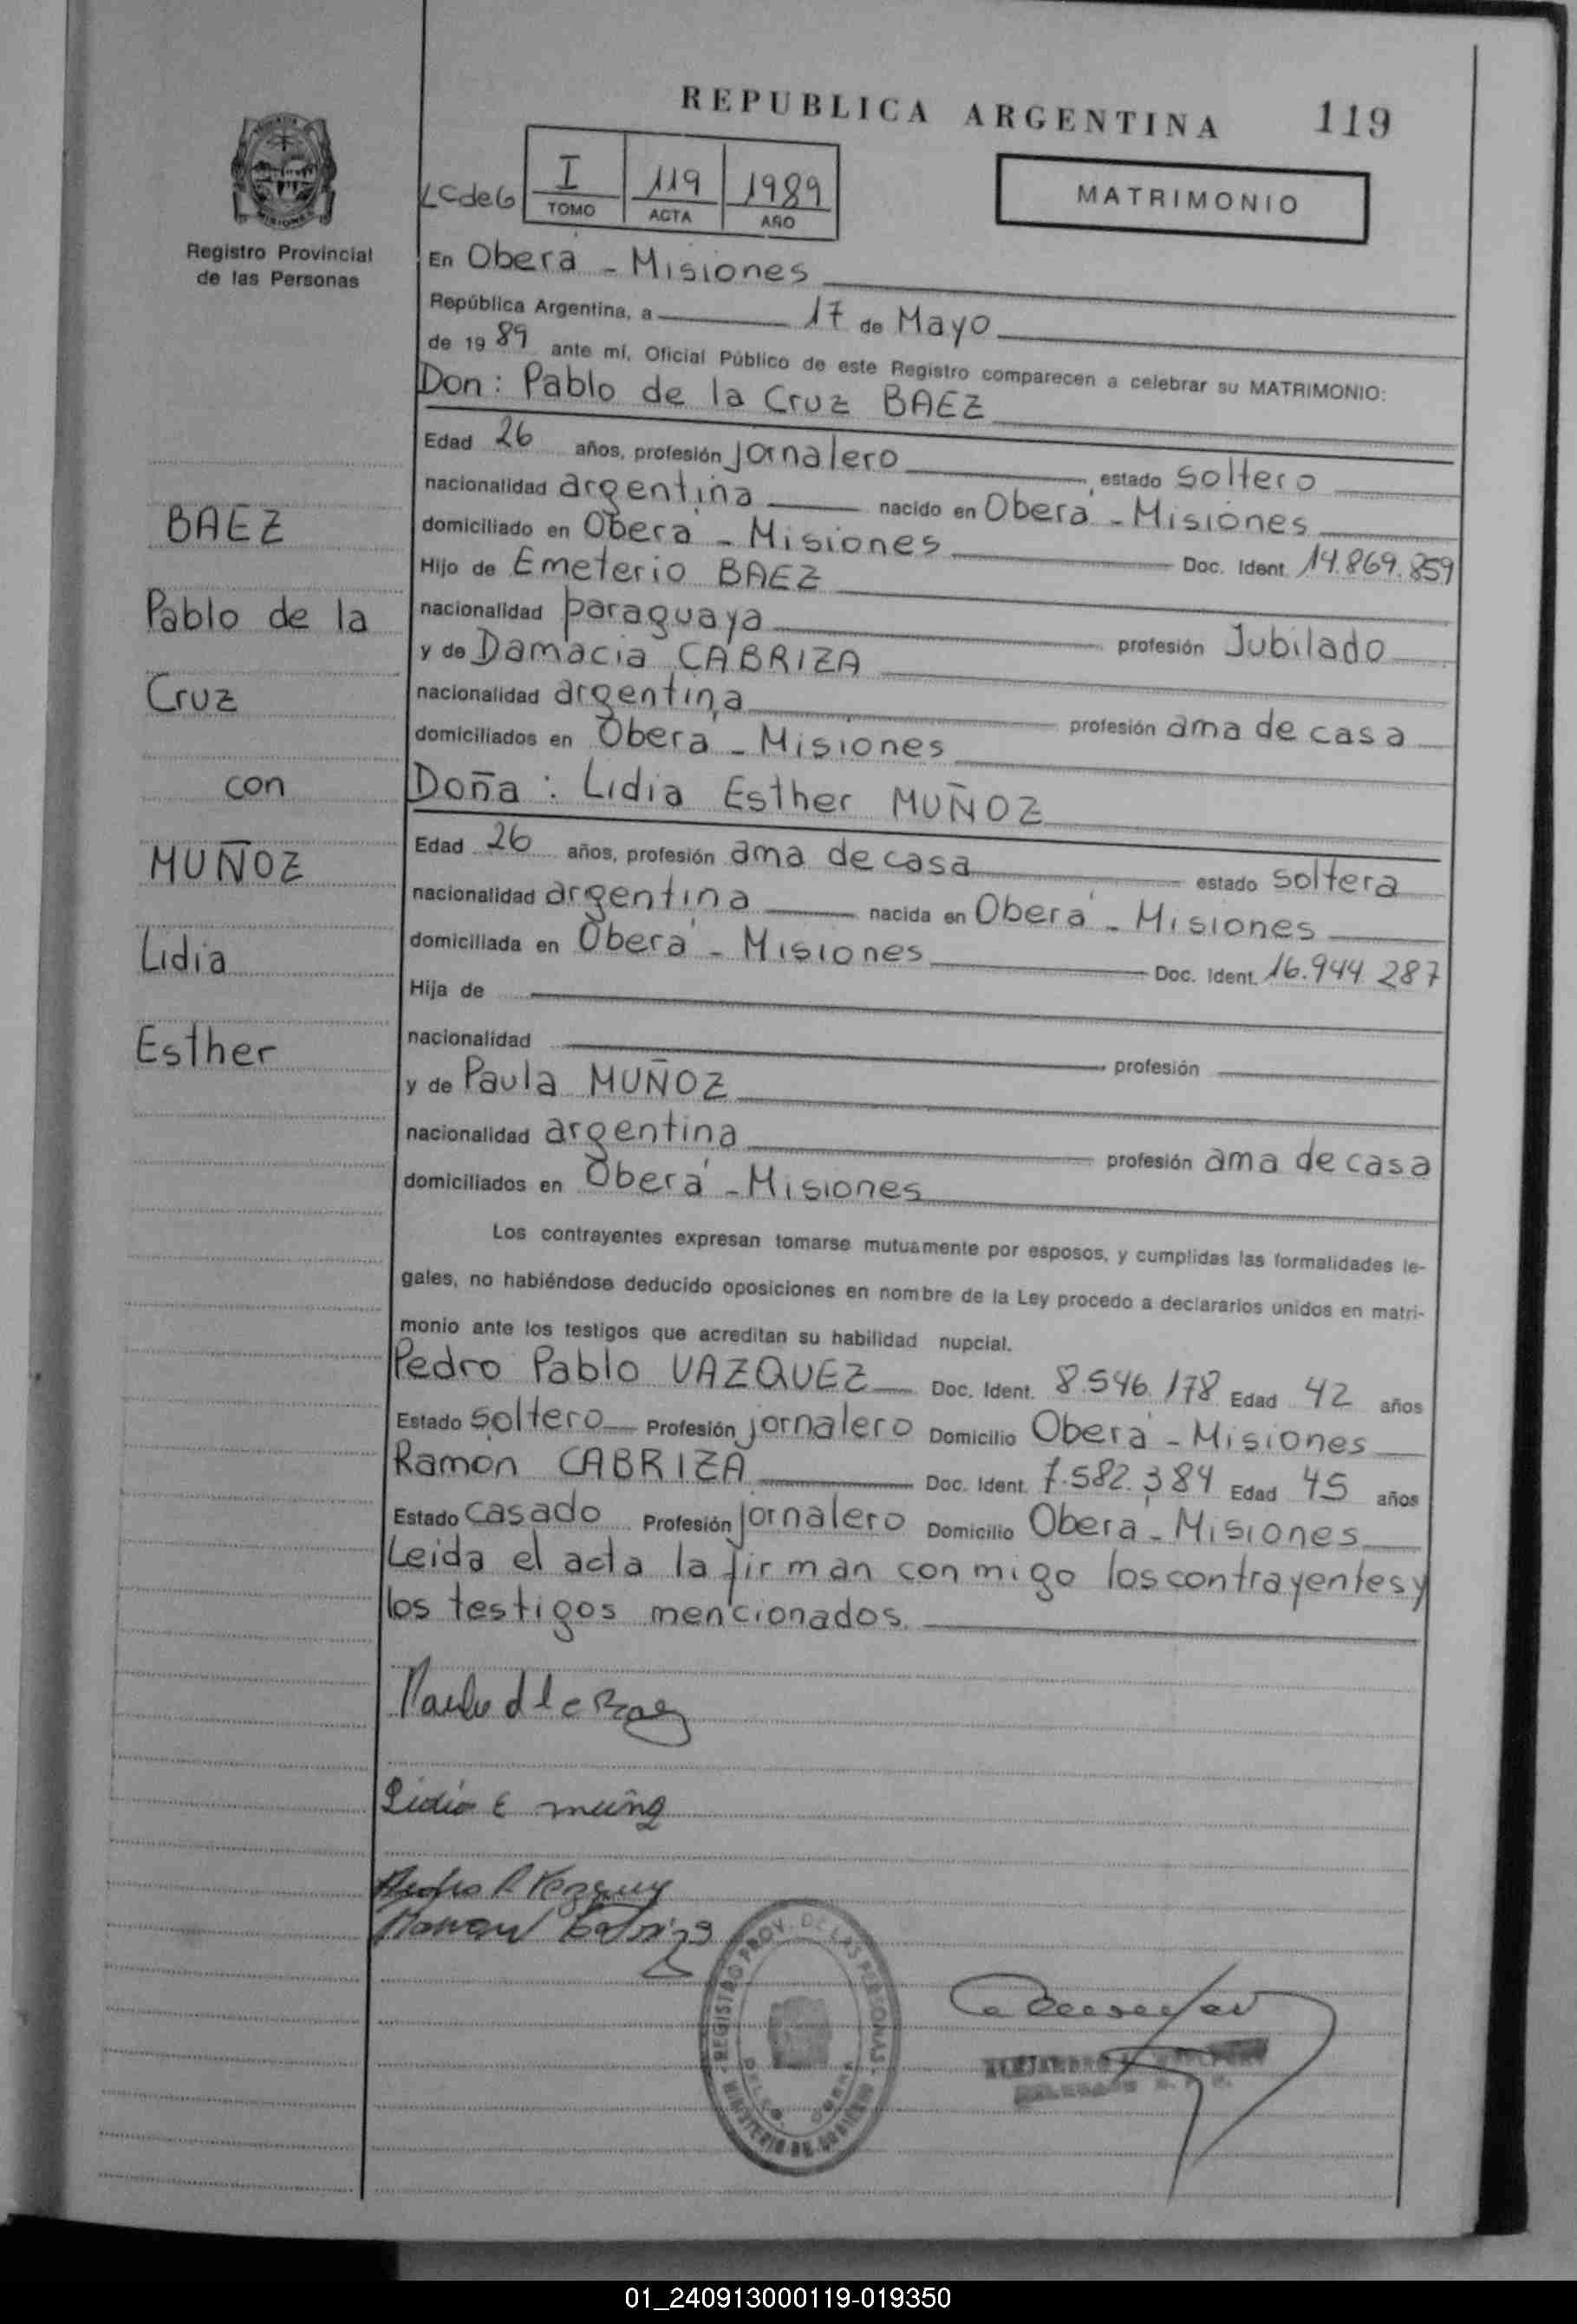 REPUBLICA ARGENTINA 119
LCdeG I 119 1989
TOMO ACTA AÑO
MATRIMONIO
Registro Provincial
de las Personas
En Oberá - Misiones
República Argentina, a 17 de Mayo
de 1989 ante mí, Oficial Público de este Registro comparecen a celebrar su MATRIMONIO:
Don: Pablo de la Cruz BAEZ
Edad 26 años, profesión jornalero, estado soltero
nacionalidad argentina nacido en Oberá - Misiones
domiciliado en Oberá - Misiones Doc. Ident. 14.869.859
Hijo de Emeterio BAEZ
nacionalidad paraguaya profesión Jubilado
y de Damacia CABRIZA
nacionalidad argentina profesión ama de casa
domiciliados en Oberá - Misiones
Doña: Lidia Esther MUÑOZ
Edad 26 años, profesión ama de casa estado soltera
nacionalidad argentina nacida en Oberá - Misiones
domiciliada en Oberá - Misiones Doc. Ident. 16.944.287
Hija de
nacionalidad profesión
y de Paula MUÑOZ
nacionalidad argentina profesión ama de casa
domiciliados en Oberá - Misiones
Los contrayentes expresan tomarse mutuamente por esposos, y cumplidas las formalidades le-
gales, no habiéndose deducido oposiciones en nombre de la Ley procedo a declararlos unidos en matri-
monio ante los testigos que acreditan su habilidad nupcial.
Pedro Pablo VAZQUEZ Doc. Ident. 8.546.178 Edad 42 años
Estado soltero Profesión jornalero Domicilio Oberá - Misiones
Ramón CABRIZA Doc. Ident. 7.582.384 Edad 45 años
Estado casado Profesión jornalero Domicilio Oberá - Misiones
Leida el acta la firman conmigo los contrayentes y
los testigos mencionados.
BAEZ
Pablo de la
Cruz
con
MUÑOZ
Lidia
Esther
Lidia E muñoz
REGISTRO PROV. DE LAS PERSONAS
MINISTERIO DE GOBIERNO
ALEJANDRO
01_240913000119-019350